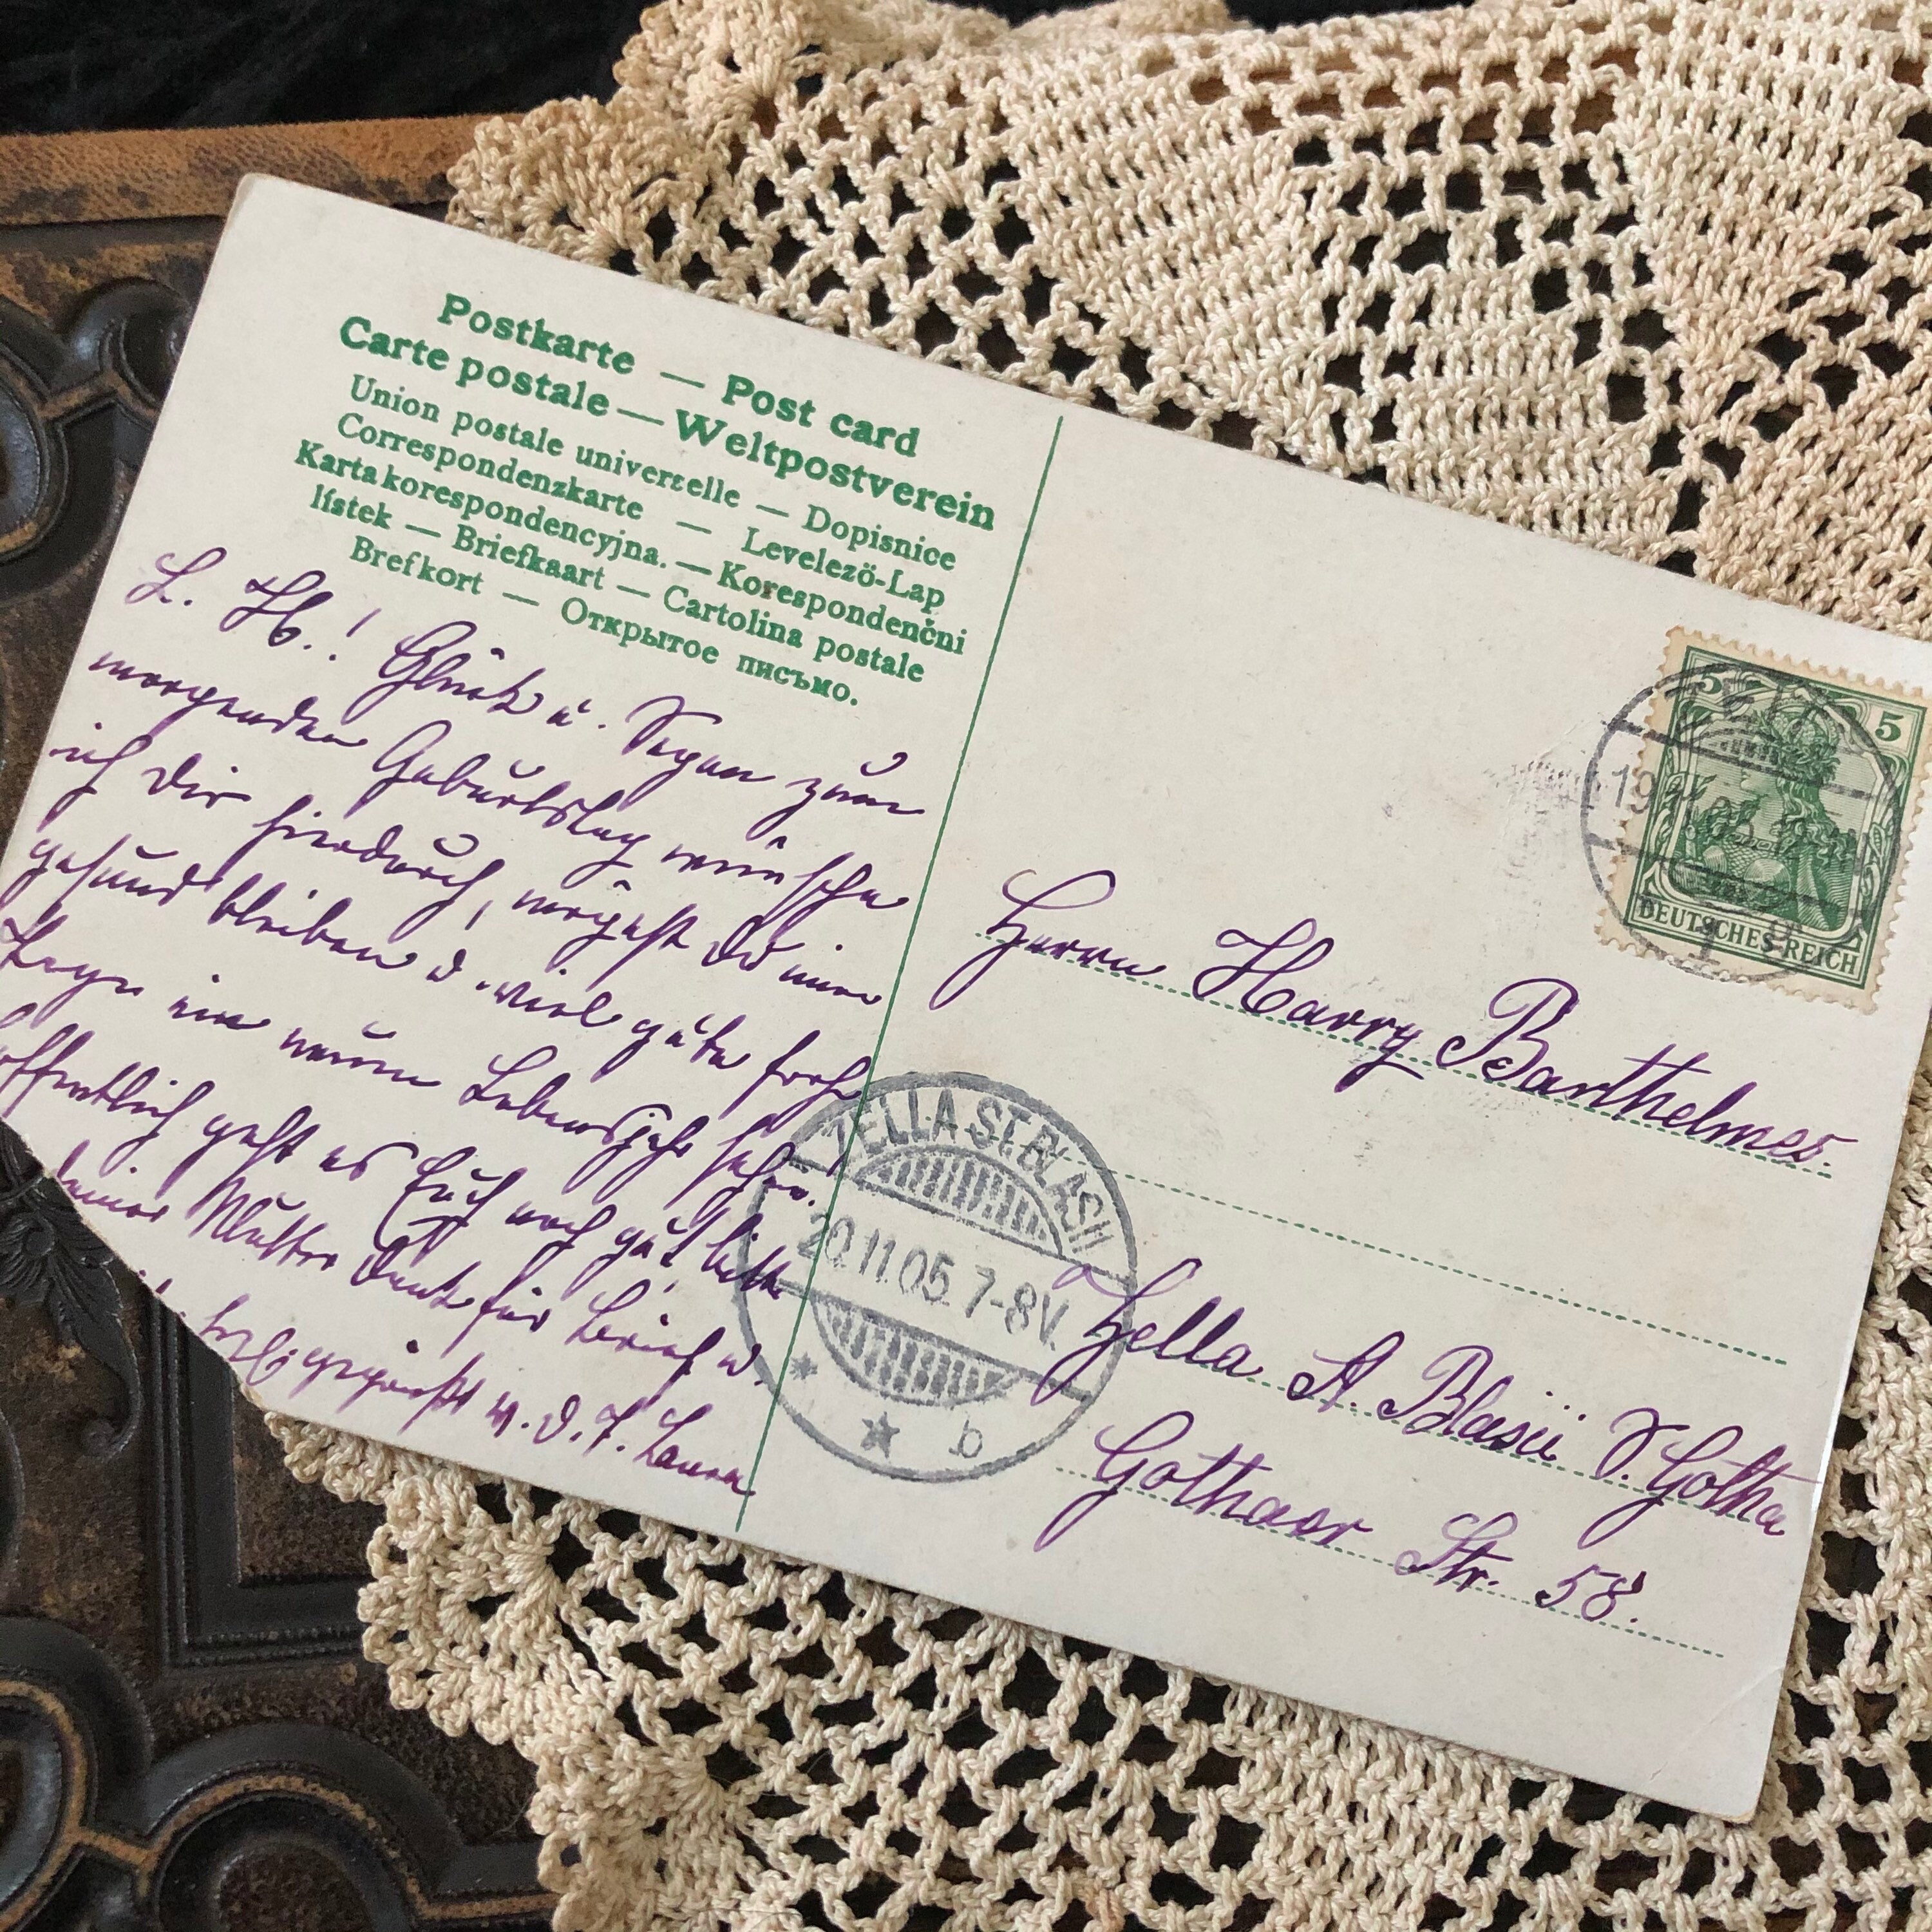 Postkarte — Post card
Carte postale — Weltpostverein
Union postale universelle — Dopisnice
Correspondenzkarte — Levelezö-Lap
Karta korespondencyjna. — Korespondenčni
lístek — Briefkaart — Cartolina postale
Brefkort — Открытое письмо.
L. H.! Glück u. Segen zum
morgenden Geburtstag wünsche
ich Dir hierdurch, mögest Du immer
gesund bleiben u. viel gute frohe
Tage im neuen Lebensjahr sehen.
offentlich geht es Euch noch gut bitte
Deiner Mutter Dank für Brief u.
herzl. gegrüßt v. D. T. Laura
5 5
DEUTSCHES REICH
19
Herrn Harry Barthelmes.
ZELLA ST. BLASII
20.11.05. 7-8V.
* * b
Zella St. Blasii S. Gotha
Gothaer Str. 58.